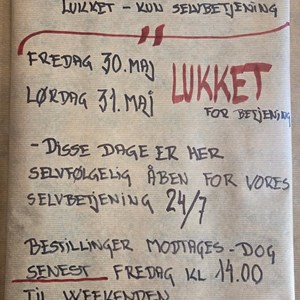 LUKKET - KUN SELVBETJENING
FREDAG 30. MAJ
LØRDAG 31. MAJ
LUKKET
FOR BETJENING
- DISSE DAGE ER HER
SELVFØLGELIG ÅBEN FOR VORES
SELVBETJENING 24/7
BESTILLINGER MODTAGES - DOG
SENEST FREDAG KL 14.00
TIL WEEKENDEN